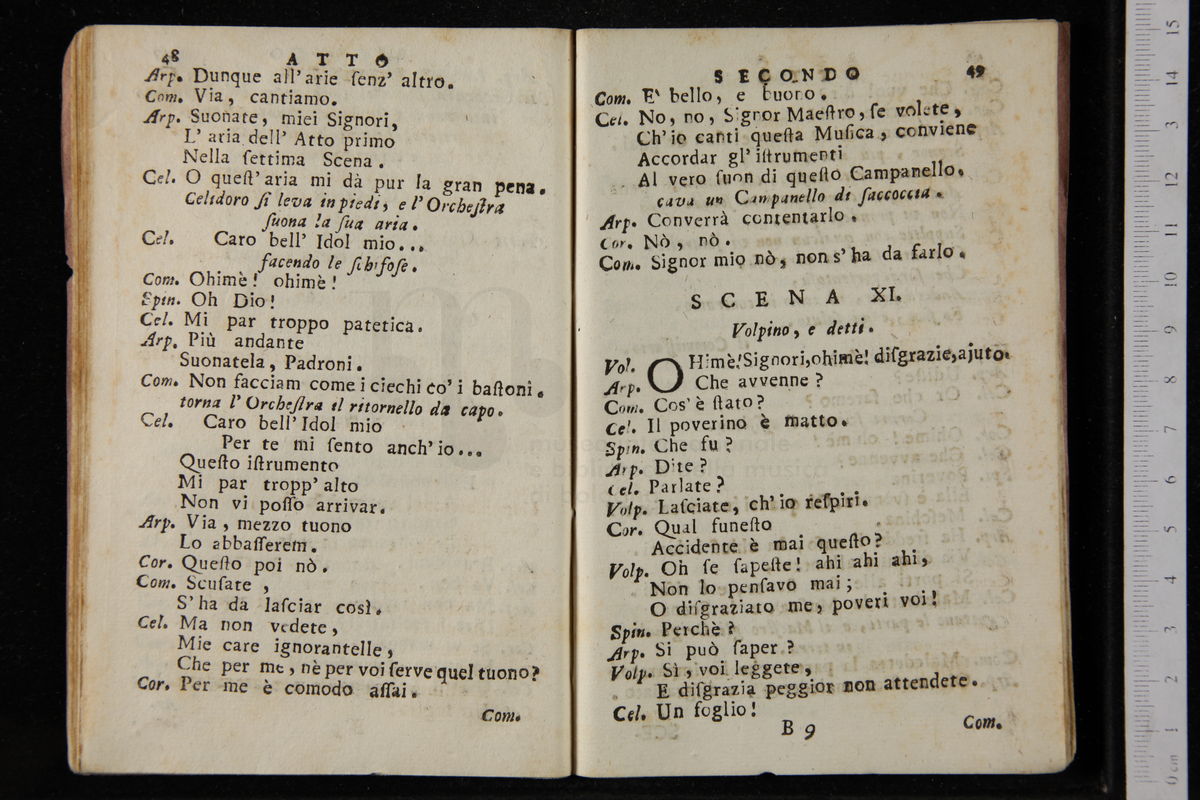 48 ATTO
Arp. Dunque all'arie ſenz' altro.
Com. Via, cantiamo.
Arp. Suonate, miei Signori,
L' aria dell' Atto primo
Nella ſettima Scena.
Cel. O queſt'aria mi dà pur la gran pena.
Celidoro ſi leva in piedi, e l'Orcheſtra
ſuona la ſua aria.
Cel. Caro bell' Idol mio...
facendo le ſchifoſe.
Com. Ohimè! ohimè!
Spin. Oh Dio!
Cel. Mi par troppo patetica.
Arp. Più andante
Suonatela, Padroni.
Com. Non facciam come i ciechi co' i baſtoni.
torna l' Orcheſtra il ritornello da capo.
Cel. Caro bell'Idol mio
Per te mi ſento anch'io...
Queſto iſtrumento
Mi par tropp'alto
Non vi poſſo arrivar.
Arp. Via, mezzo tuono
Lo abbaſſerem.
Cor. Queſto poi nò.
Com. Scuſate,
S'ha da laſciar così.
Cel. Ma non vedete,
Mie care ignorantelle,
Che per me, nè per voi ſerve quel tuono?
Cor. Per me è comodo aſſai.
Com.
SECONDO 49
Com. E' bello, e buono.
Cel. No, no, Signor Maeſtro, ſe volete,
Ch'io canti queſta Muſica, conviene
Accordar gl'iſtrumenti
Al vero ſuon di queſto Campanello.
cava un Campanello di ſaccoccia.
Arp. Converrà contentarlo.
Cor. Nò, nò.
Com. Signor mio nò, non s'ha da farlo.
SCENA XI.
Volpino, e detti.
Vol. OHimè! Signori, ohimè! diſgrazie, ajuto.
Arp. Che avvenne?
Com. Cos'è ſtato?
Cel. Il poverino è matto.
Spin. Che fu?
Arp. Dite?
Cel. Parlate?
Volp. Laſciate, ch'io reſpiri.
Cor. Qual funeſto
Accidente è mai queſto?
Volp. Oh ſe ſapeſte! ahi ahi ahi,
Non lo penſavo mai;
O diſgraziato me, poveri voi!
Spin. Perchè?
Arp. Si può ſaper?
Volp. Sì, voi leggete,
E diſgrazia peggior non attendete.
Cel. Un foglio!
B 9 Com.